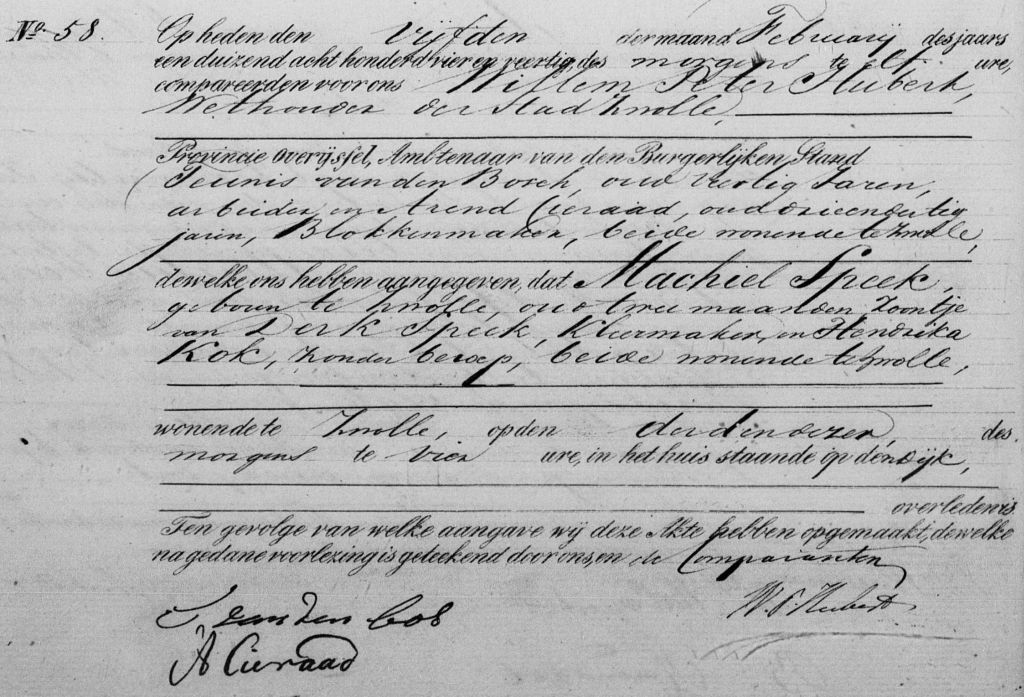 No. 58.
Op heden den vijfden der maand Februarij des jaars
een duizend acht honderd vier en veertig, des morgens te elf ure,
compareerden voor ons Willem Peter Hubert,
Wethouder der Stad Zwolle,
Provincie Overijssel, Ambtenaar van den Burgerlijken Stand
Teunis van den Bosch, oud veertig Jaren,
arbeider, en Arend Cieraad, oud drieendertig
jaren, Blokkenmaker, beide wonende te Zwolle,
dewelke ons hebben aangegeven, dat Machiel Speek,
geboren te Zwolle, oud twee maanden, Zoontje
van Derk Speek, Kleermaker, en Hendrika
Kok, zonder beroep, beide wonende te Zwolle,
wonende te Zwolle, op den derden dezer, des
morgens te vier ure, in het huis staande op den dijk,
overleden is.
Ten gevolge van welke aangave wij deze Akte hebben opgemaakt, dewelke
na gedane voorlezing is geteekend door ons, en de Comparanten
W. P. Hubert
T. van den bos
A Cieraad